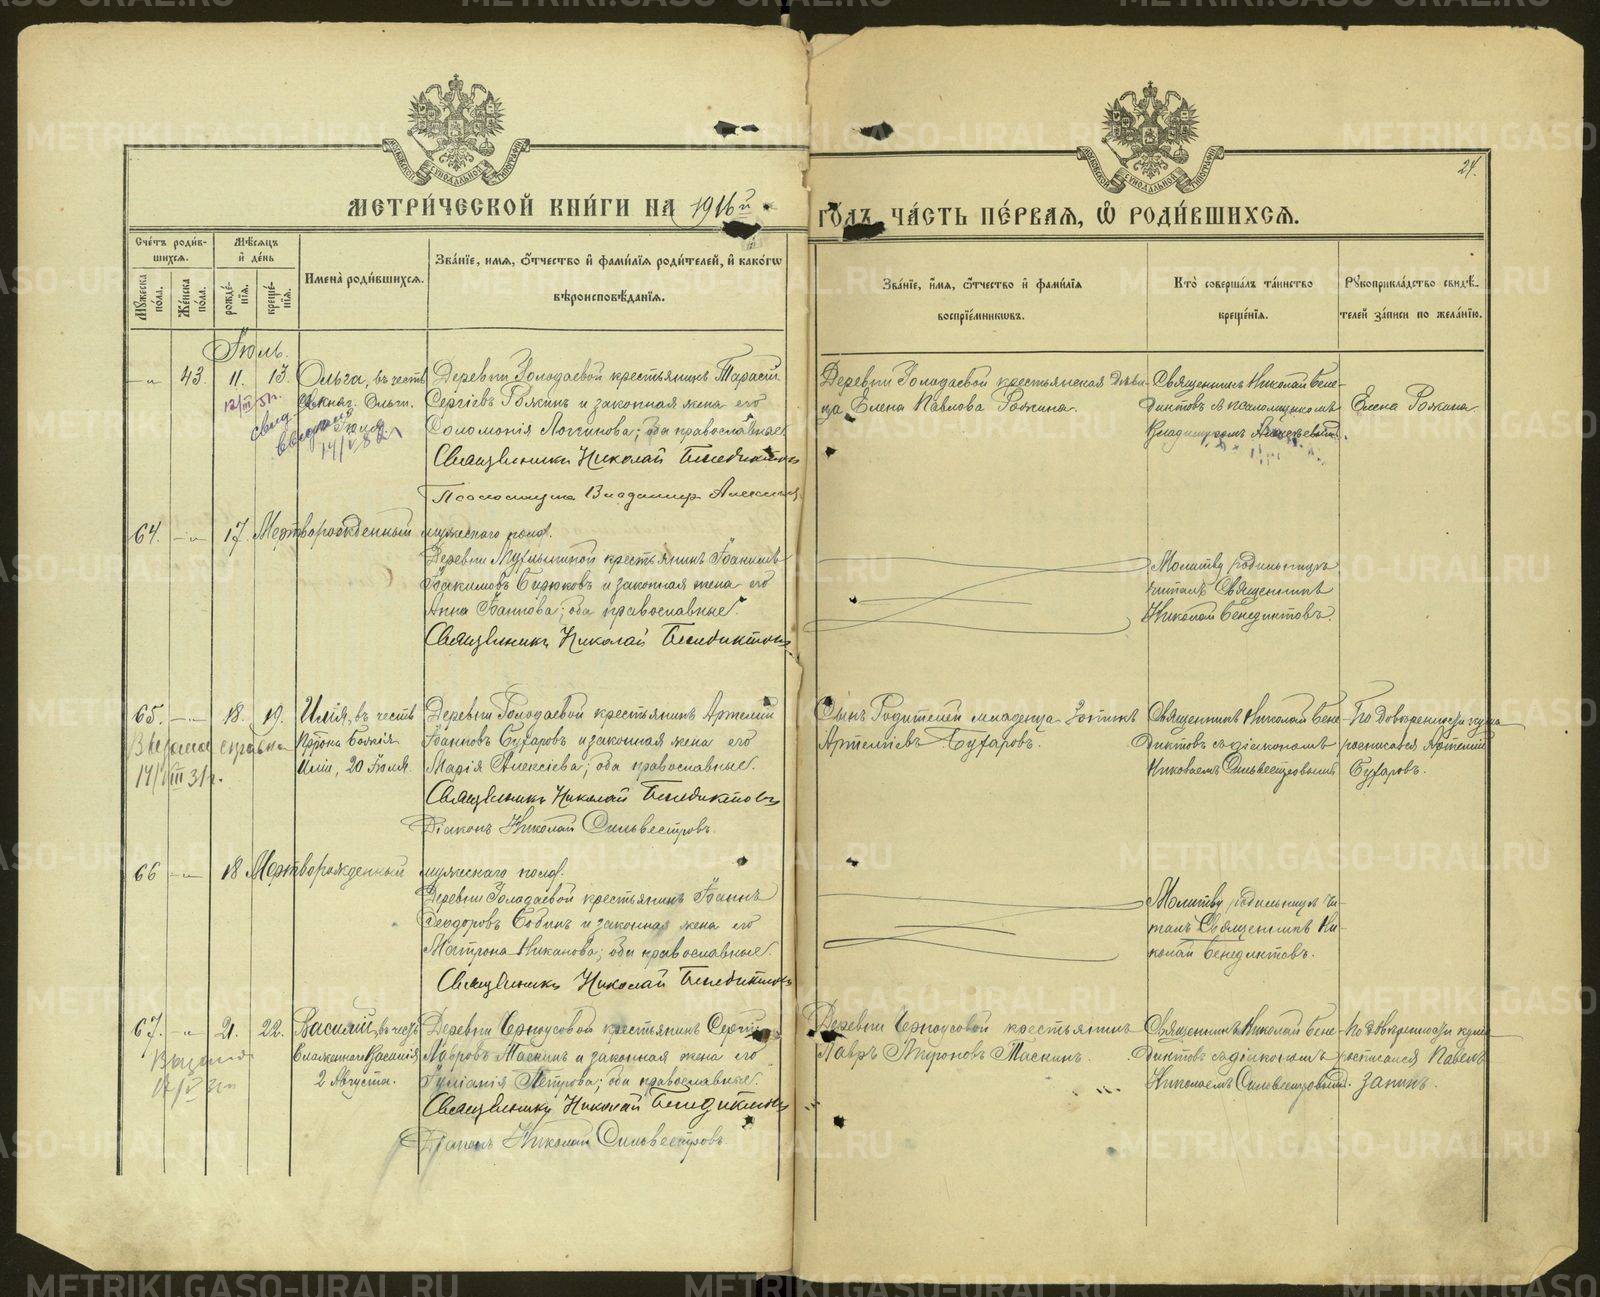 МЕТРИ́ЧЕСКОЙ КНИ́ГИ НА 1916й
ГО́ДЪ, ЧА́СТЬ ПЕ́РВАЯ, Ѡ҆ РОДИ́ВШИХСѦ.
24.
Сче́тъ роди́в-
шихсѧ.
Мꙋ́жеска
по́ла.
Же́нска
по́ла.
Мѣ́сѧцъ
и҆ де́нь
рожде́-
нїѧ.
креще́-
нїѧ.
Имена̀ роди́вшихсѧ.
Зва́нїе, и҆́мѧ, ѻ҆́тчество и҆ фами́лїѧ роди́телей, и҆ како́гѡ
вѣроисповѣ́данїѧ.
Зва́нїе, и҆́мѧ, ѻ҆́тчество и҆ фами́лїѧ
воспрїе́мникѡвъ.
Кто̀ соверша́лъ та́инство
креще́нїѧ.
Рꙋкоприкла́дство свидѣ́-
телей за́писи по жела́нїю.
Іюль.
43. 11. 13. Ольга, въ честь
Деревни Голодаевой крестьянинъ Тарасій
Сергіевъ Рожинъ и законная жена его
Соломонія Логгинова; оба православные
Священникъ Николай Бенедиктовъ
Псаломщикъ Владимиръ
Деревни Голодаевой крестьянская дѣви-
ца Елена Павлова Рожина.
Священникъ Николай Бене-
диктовъ съ псаломщикомъ
Владимиромъ
Елена Рожина
64. 17. Мертворожденный мужескаго пола.
Деревни крестьянинъ Іоаннъ
Іоакимовъ Бирюковъ и законная жена его
Анна Іоаннова; оба православные.
Священникъ Николай Бенедиктовъ
Молитву родильницѣ
читалъ Священникъ
Николай Бенедиктовъ.
65. 18. 19. Илія, въ честь
Прор. Божія
Иліи, 20 Іюля.
Выдана справка
14/III 31г.
Деревни Голодаевой крестьянинъ Артемій
Іоанновъ Бухаровъ и законная жена его
Марія Алексіева; оба православные.
Священникъ Николай Бенедиктовъ
Діаконъ Николай Сильвестровъ.
Сынъ Родителей младенца Зотикъ
Артеміевъ Бухаровъ.
Священникъ Николай Бене-
диктовъ съ діакономъ
Николаемъ Сильвестровымъ
По довѣренности кума
росписался Артемій
Бухаровъ.
66 18 Мертворожденный мужескаго пола.
Деревни Голодаевой крестьянинъ Іоаннъ
Ѳеодоровъ Бобинъ и законная жена его
Матрона Никанова; оба православные.
Священникъ Николай Бенедиктовъ
Молитву родильницѣ чи-
талъ Священникъ Ни-
колай Бенедиктовъ.
67. 21. 22. Василій, въ честь
Блаженнаго Василія
2 Августа.
Деревни Черноусовой крестьянинъ Сергій
Лавровъ Маскинъ и законная жена его
Іуліанія Петрова; оба православные.
Священникъ Николай Бенедиктовъ
Діаконъ Николай Сильвестровъ.
Деревни Черноусовой крестьянинъ
Лавръ Мироновъ Маскинъ.
Священникъ Николай Бене-
диктовъ съ діакономъ
Николаемъ Сильвестровымъ.
По довѣренности кума
росписался Павелъ
Занинъ.
METRIKI.GASO-URAL.RU